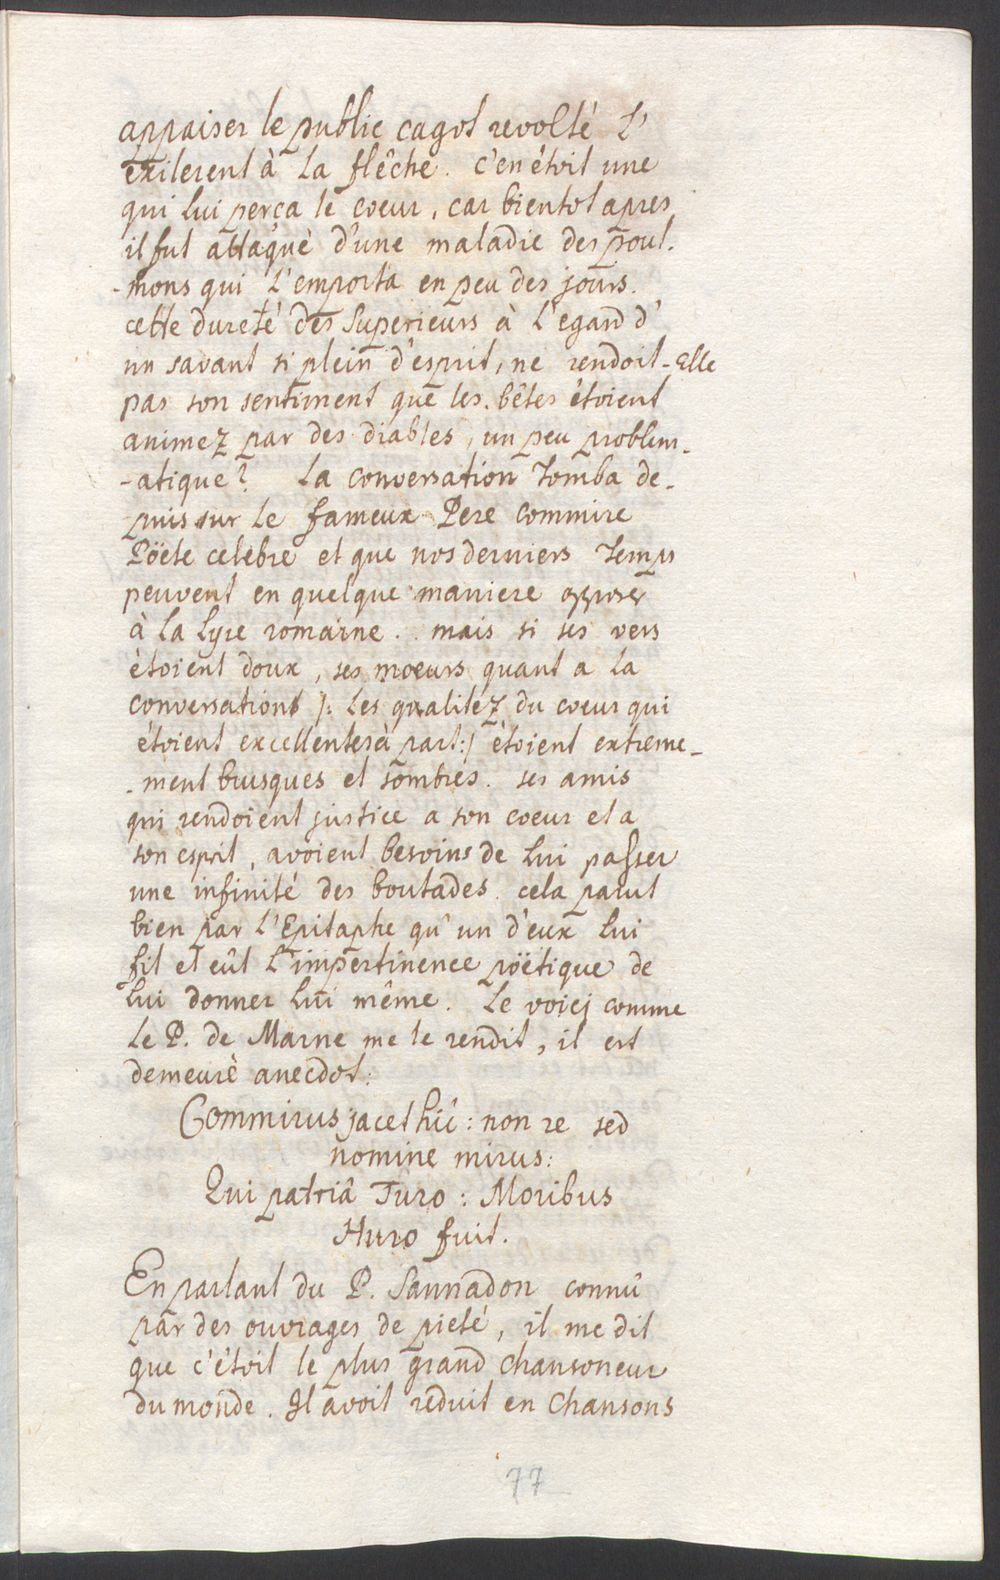 appaiser le public cagot revolté L'
exilerent à La flêche. c'en étoit une
qui lui perça le coeur, car bientot apres
il fut attaquè d'une maladie des poul-
-mons qui L'emporta en peu des jours.
cette dureté des Superieurs à L'egard d'
un savant si plein d'esprit, ne rendoit-Elle
pas son sentiment que les bêtes étoient
animez par des diables, un peu problem-
-atique? La conversation Tomba de-
puis sur Le fameux Pere commire
Pöete celèbre et que nos derniers Temps
peuvent en quelque maniere opposer
à La Lyre romaine. mais si ses vers
ètoient doux, ses moeurs quant a La
conversation /: Les qualitéz du coeur qui
étoient excellentes à part :/ étoient extreme-
-ment brusques et sombres. ses amis
qui rendoient justice a son coeur et a
son esprit, avoient besoins de Lui passer
une infinité des boutades. cela parut
bien par L'Epitaphe qu'un d'eux Lui
fit et eût L'impertinence pöetique de
Lui donner Lui même. Le voicj comme
Le P. de Marne me le rendit, il est
demeurè anecdot:
Commirus jacet hîc: non re sed
nomine mirus:
Qui patriâ Turo: Moribus
Huro fuit.
En parlant du P. Sannadon connû
par des ouvrages de pieté, il me dit
que c'étoit le plus grand chansoneur
du monde. Il avoit reduit en Chansons
77